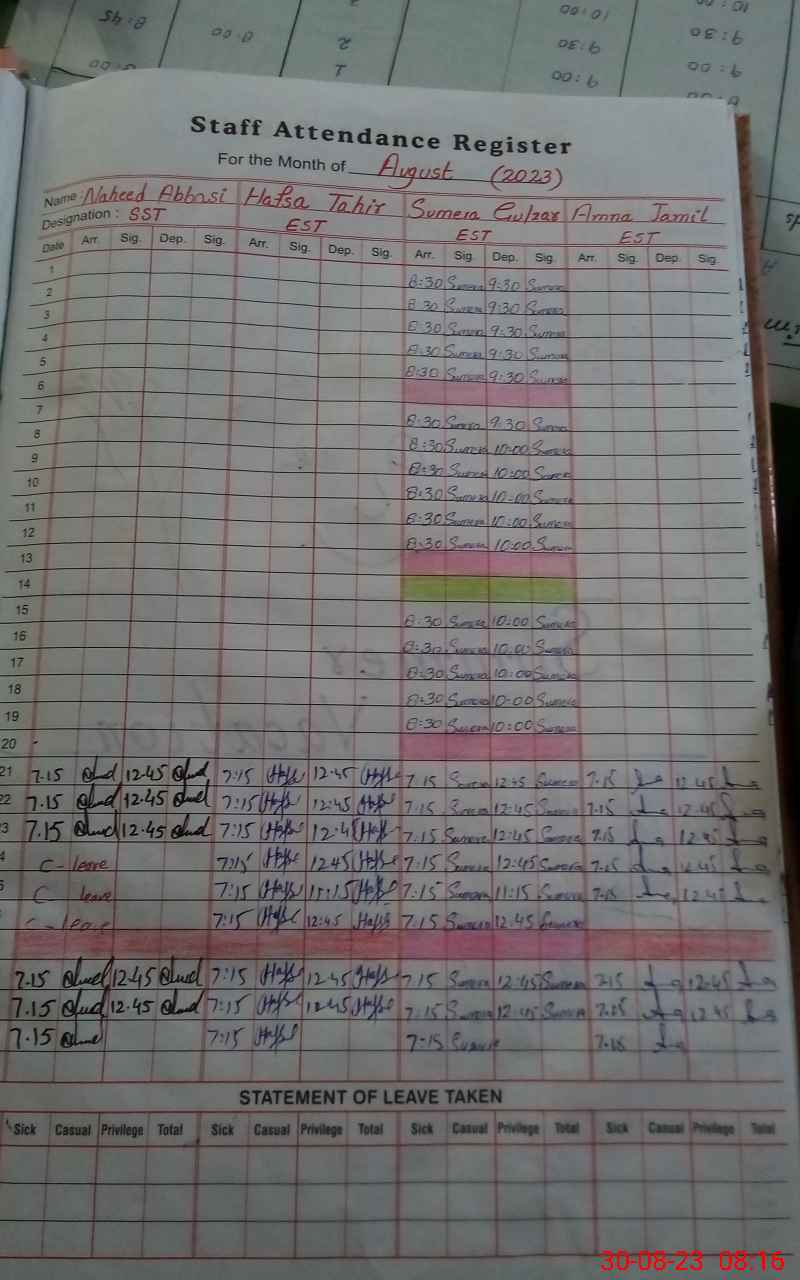 8:45 8:00 2 9:30 10:00 9:30
1 9:00 9:00
Staff Attendance Register
For the Month of August (2023)
Name: Naheed Abbasi Hafsa Tahir Sumera Gulzar Amna Jamil
Designation: SST EST EST EST
Date Arr. Sig. Dep. Sig. Arr. Sig. Dep. Sig. Arr. Sig. Dep. Sig. Arr. Sig. Dep. Sig.
1 8:30 Sumera 9:30 Sumera
2 8:30 Sumera 9:30 Sumera
3 8:30 Sumera 9:30 Sumera
4 8:30 Sumera 9:30 Sumera
5 8:30 Sumera 9:30 Sumera
6
7 8:30 Sumera 9:30 Sumera
8 8:30 Sumera 10:00 Sumera
9 8:30 Sumera 10:00 Sumera
10 8:30 Sumera 10:00 Sumera
11 8:30 Sumera 10:00 Sumera
12 8:30 Sumera 10:00 Sumera
13
14
15 8:30 Sumera 10:00 Sumera
16 8:30 Sumera 10:00 Sumera
17 8:30 Sumera 10:00 Sumera
18 8:30 Sumera 10:00 Sumera
19 8:30 Sumera 10:00 Sumera
20
21 7.15 12.45 7:15 Hafsa 12:45 Hafsa 7:15 Sumera 12:45 Sumera 7.15 12.45
22 7.15 12.45 7:15 Hafsa 12:45 Hafsa 7:15 Sumera 12:45 Sumera 7.15 12.45
3 7.15 12.45 7:15 Hafsa 12:45 Hafsa 7:15 Sumera 12:45 Sumera 7.15 12.45
4 C-leave 7:15 Hafsa 12:45 Hafsa 7:15 Sumera 12:45 Sumera 7.15 12.45
C leave 7:15 Hafsa 11:15 Hafsa 7:15 Sumera 11:15 Sumera 7.15 12.45
C-leave 7:15 Hafsa 12:45 Hafsa 7:15 Sumera 12:45 Sumera
7.15 12.45 7:15 Hafsa 12:45 Hafsa 7:15 Sumera 12:45 Sumera 7.15 12.45
7.15 12.45 7:15 Hafsa 12:45 Hafsa 7:15 Sumera 12:45 Sumera 7.15 12.45
7.15 7:15 Hafsa 7:15 Sumera 7.15
STATEMENT OF LEAVE TAKEN
Sick Casual Privilege Total Sick Casual Privilege Total Sick Casual Privilege Total Sick Casual Privilege Total
30-08-23 08:16